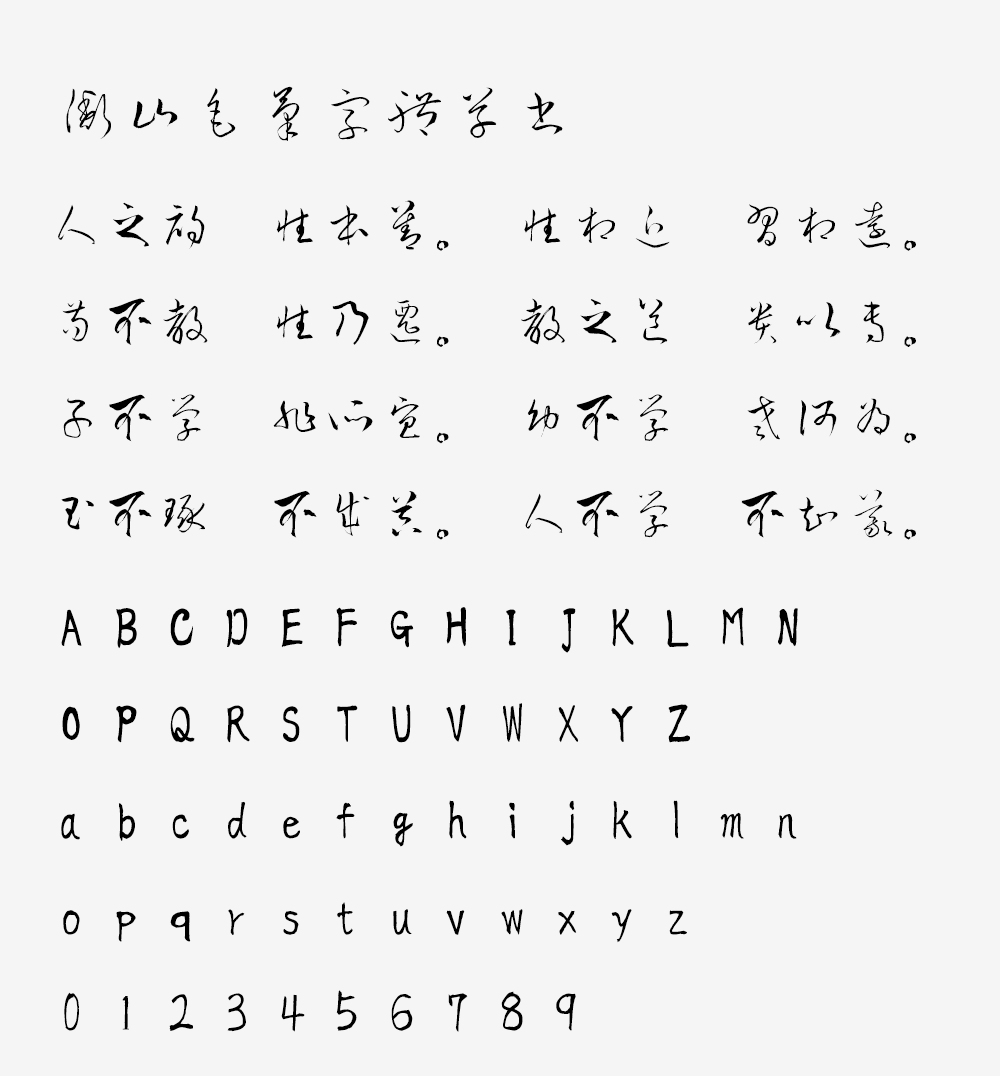 衡山毛筆字體草书
人之初 性本善。 性相近 習相遠。
苟不教 性乃遷。 教之道 貴以專。
子不学 非所宜。 幼不学 老何為。
玉不琢 不成器。 人不学 不知義。
A B C D E F G H I J K L M N
O P Q R S T U V W X Y Z
a b c d e f g h i j k l m n
o p q r s t u v w x y z
0 1 2 3 4 5 6 7 8 9